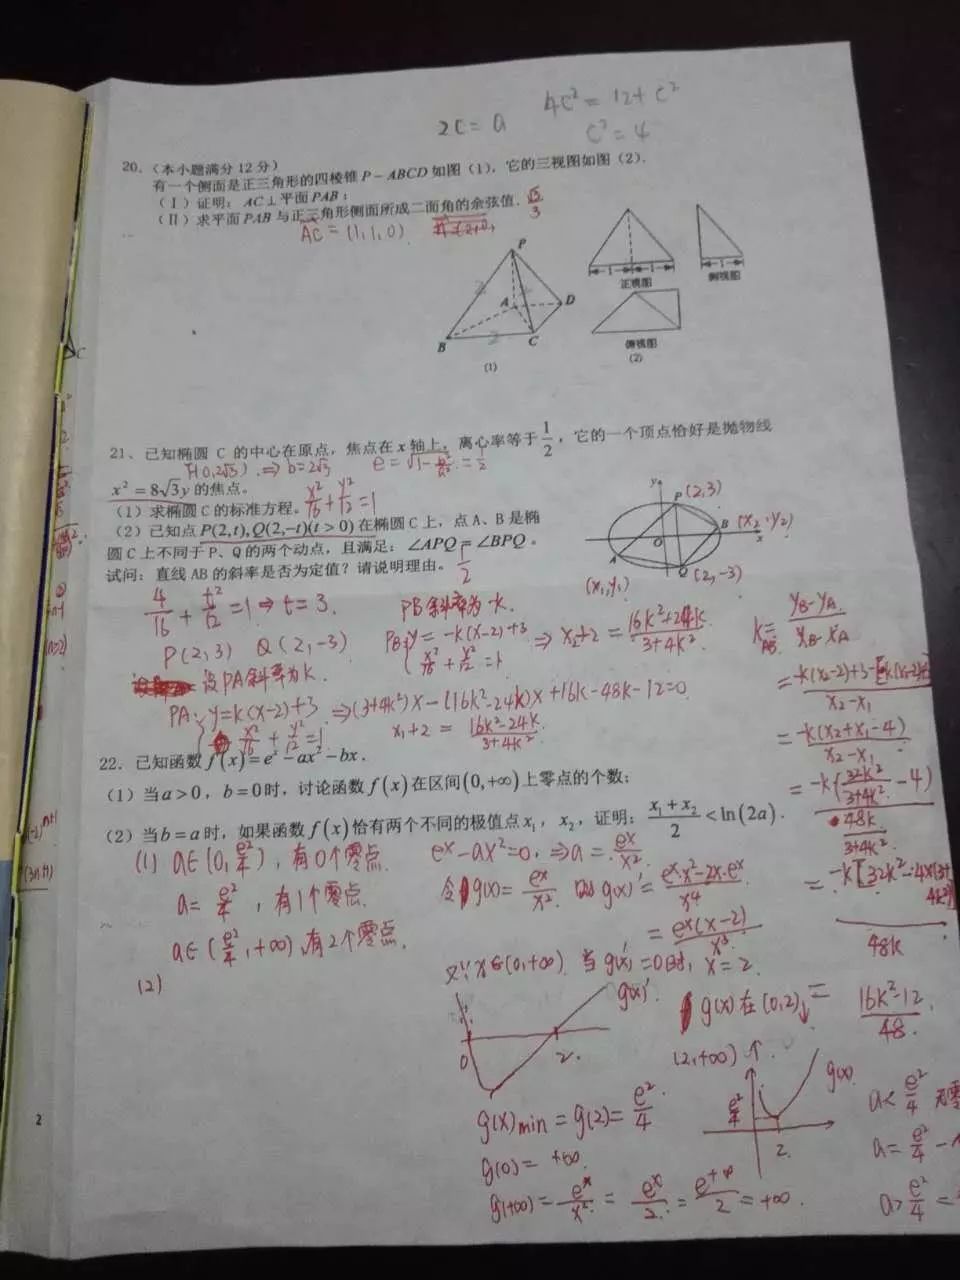 2c = a
4c² = 12 + c²
c² = 4
20.（本小题满分12分）
有一个侧面是正三角形的四棱锥 P－ABCD 如图（1），它的三视图如图（2）．
（Ⅰ）证明：AC⊥平面 PAB；
（Ⅱ）求平面 PAB 与正三角形侧面所成二面角的余弦值．
AC = (1,1,0)
P
A
D
B
C
2
2
（1）
1
1
正视图
1
侧视图
俯视图
（2）
21、已知椭圆 C 的中心在原点，焦点在 x 轴上，离心率等于 1/2，它的一个顶点恰好是抛物线
F(0,2√3) ⇒ b=2√3
x² = 8√3y 的焦点。
（1）求椭圆 C 的标准方程。 x²/16 + y²/12 = 1
（2）已知点 P(2,t), Q(2,-t)(t > 0) 在椭圆 C 上，点 A、B 是椭
圆 C 上不同于 P、Q 的两个动点，且满足：∠APQ = ∠BPQ。
试问：直线 AB 的斜率是否为定值？请说明理由。 1/2
y
P (2,3)
B (x₂,y₂)
O
x
A
Q (2,-3)
(x₁,y₁)
4/16 + t²/12 = 1 ⇒ t = 3.
P(2,3) Q(2,-3)
设PA斜率为k.
PB斜率为-k.
PB: y = -k(x-2)+3
x²/16 + y²/12 = 1
⇒ x₂+2 = 16k²+24k / 3+4k²
PA: y = k(x-2)+3 ⇒ (3+4k²)x - (16k²-24k)x + 16k-48k-12=0
x²/16 + y²/12 = 1
x₁+2 = 16k²-24k / 3+4k²
k AB = y_B - y_A / x_B - x_A
= -k(x₂+x₁-4) / x₂-x₁
= -k(32k²/3+4k² - 4) / 48k/3+4k²
48k
= 16k²-12 / 48
22．已知函数 f(x) = eˣ - ax² - bx．
（1）当 a > 0，b = 0 时，讨论函数 f(x) 在区间 (0,+∞) 上零点的个数；
（2）当 b = a 时，如果函数 f(x) 恰有两个不同的极值点 x₁，x₂，证明：x₁ + x₂ / 2 < ln(2a)．
(1) a∈(0, e²/4), 有0个零点
a = e²/4, 有1个零点.
a∈(e²/4, +∞), 有2个零点.
(2)
eˣ - ax² = 0, ⇒ a = eˣ/x².
令g(x) = eˣ/x² 则g(x)' = eˣ·x² - 2x·eˣ / x⁴
= eˣ(x-2) / x³
又∵x∈(0,+∞) 当g(x)'=0时, x=2.
g(x)'
0
2
g(x)在(0,2)↓
(2,+∞)↑.
g(x)min = g(2) = e²/4
g(0) = +∞
g(+∞) = eˣ/x² = eˣ/2 = +∞
e²/4
2
g(x)
a < e²/4
a = e²/4
a > e²/4
2